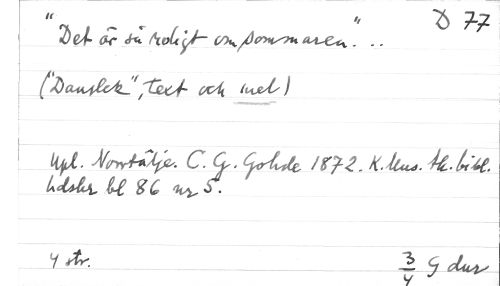 D 77
"Det är så roligt om sommaren." ...
("Danslek", text och mel)
Upl. Norrtälje. C. G. Gohde 1872. K. Mus. Ak. bibl.
hdskr bl 86 nr 5.
4 str.
3/4 G dur